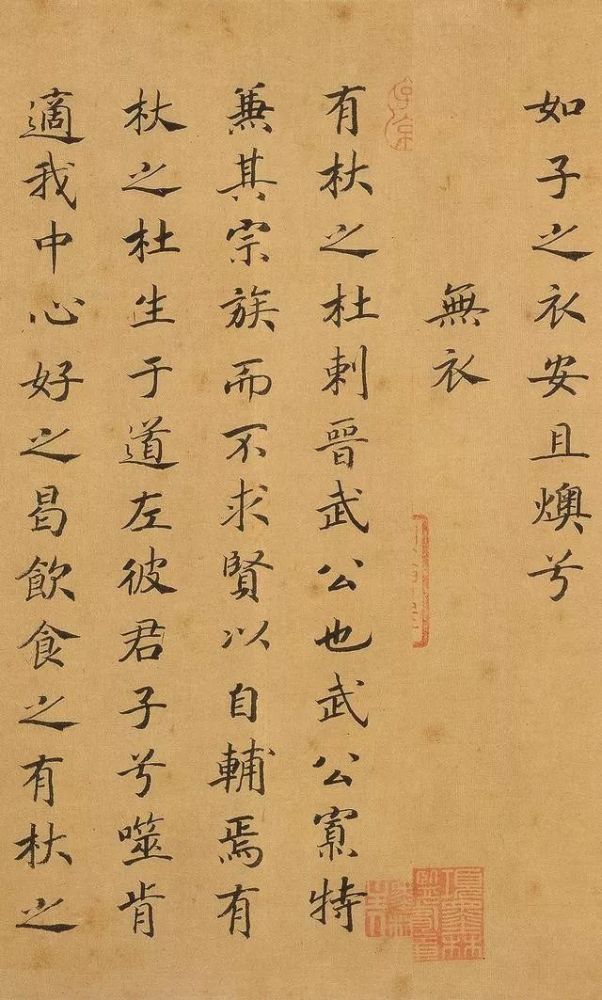 如子之衣安且燠兮
無衣
有杕之杜刺晉武公也武公寡特
兼其宗族而不求賢以自輔焉有
杕之杜生于道左彼君子兮噬肯
適我中心好之曷飲食之有杕之